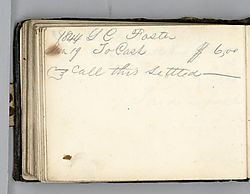 1884 G C Foster
Jan 19 To Cash $ 6,00
Call this Settled